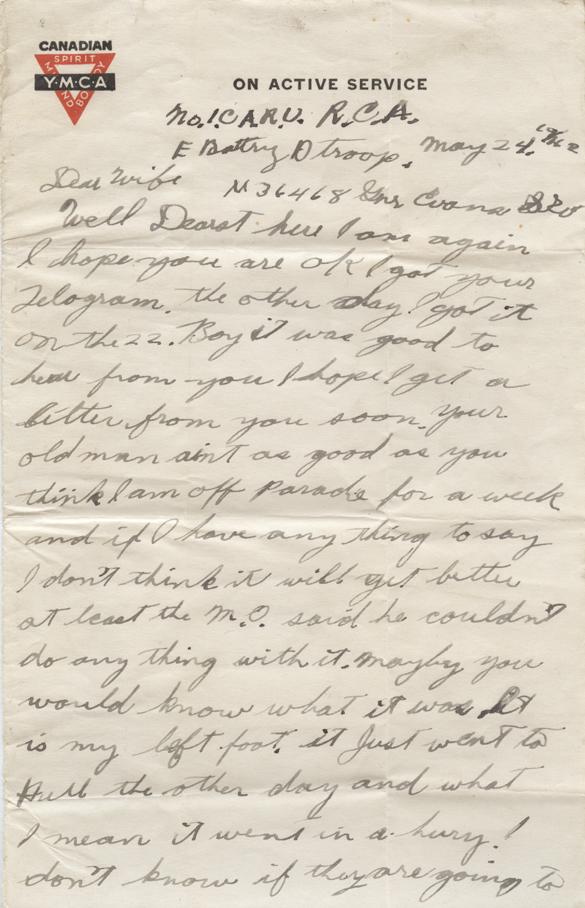 CANADIAN
SPIRIT
MIND
BODY
Y·M·C·A
ON ACTIVE SERVICE
No.1.C.A.R.U. R.C.A.
E Battry D troop. May 24
Dear Wife
M 36468 Gnr Evans
Well Dearst here I am again
I hope you are OK I got your
Telogram. the other day I got it
on the 22. Boy it was good to
hear from you I hope I get a
letter from you soon. your
old man aint as good as you
think I am off Parade for a week
and if I have any thing to say
I don't think it will get better
at least the M.O. said he couldn't
do any thing with it. mayby you
would know what it was. It
is my left foot. it Just went to
Hell the other day and what
I mean it went in a hury. I
don't know if they are going to